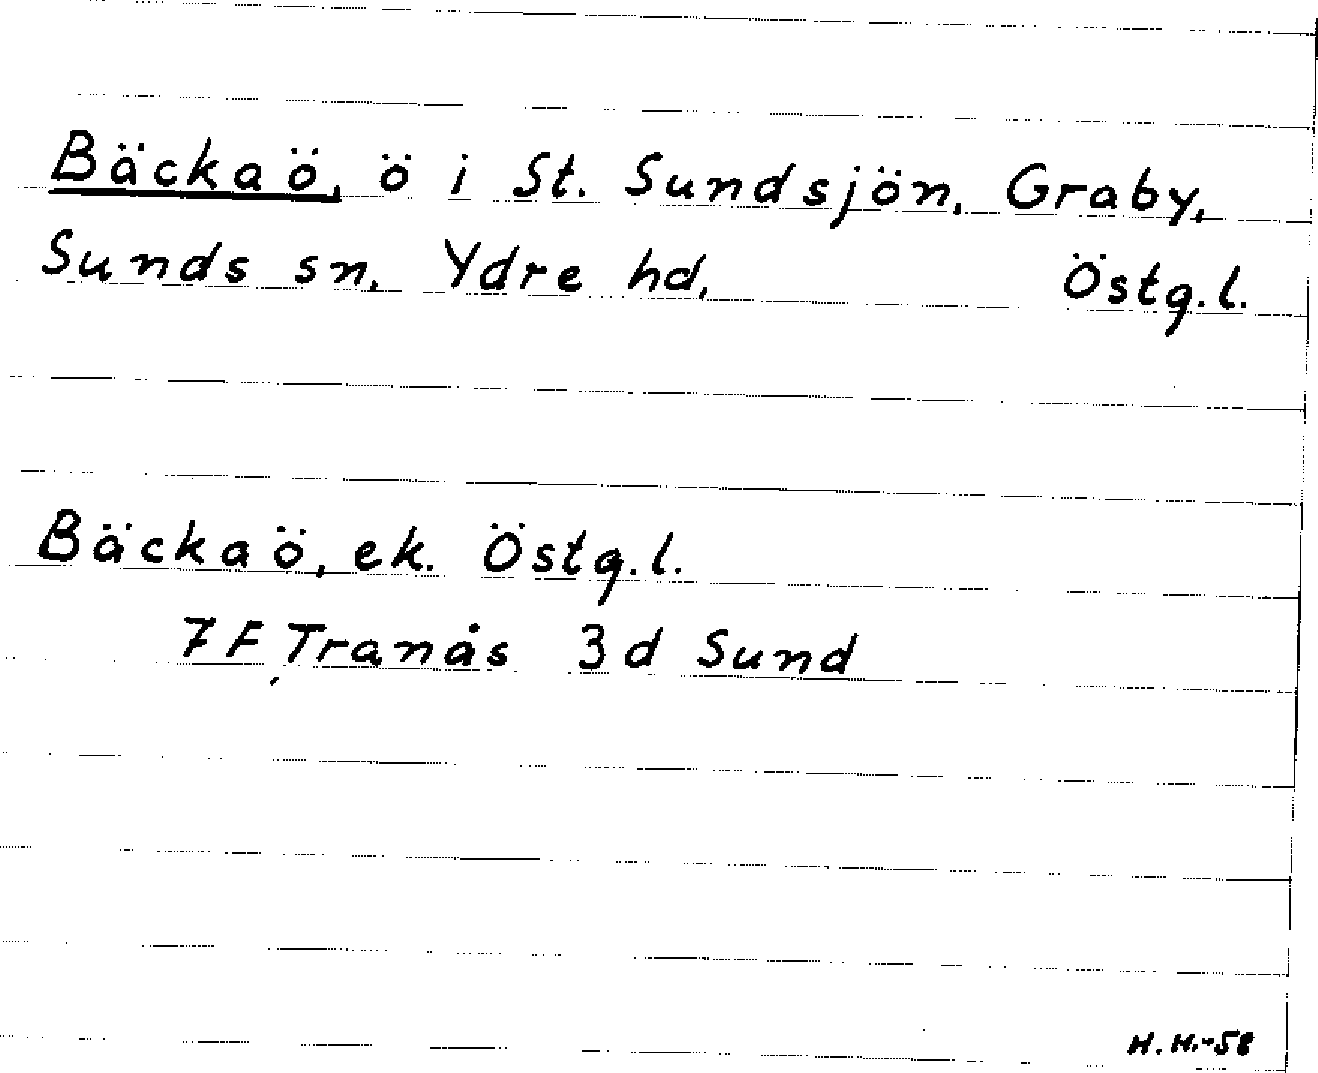 Bäckaö, ö i St. Sundsjön, Graby,
Sunds sn, Ydre hd, Östg.l.
Bäckaö, ek. Östg.l.
7F Tranås 3d Sund
H.H.-58